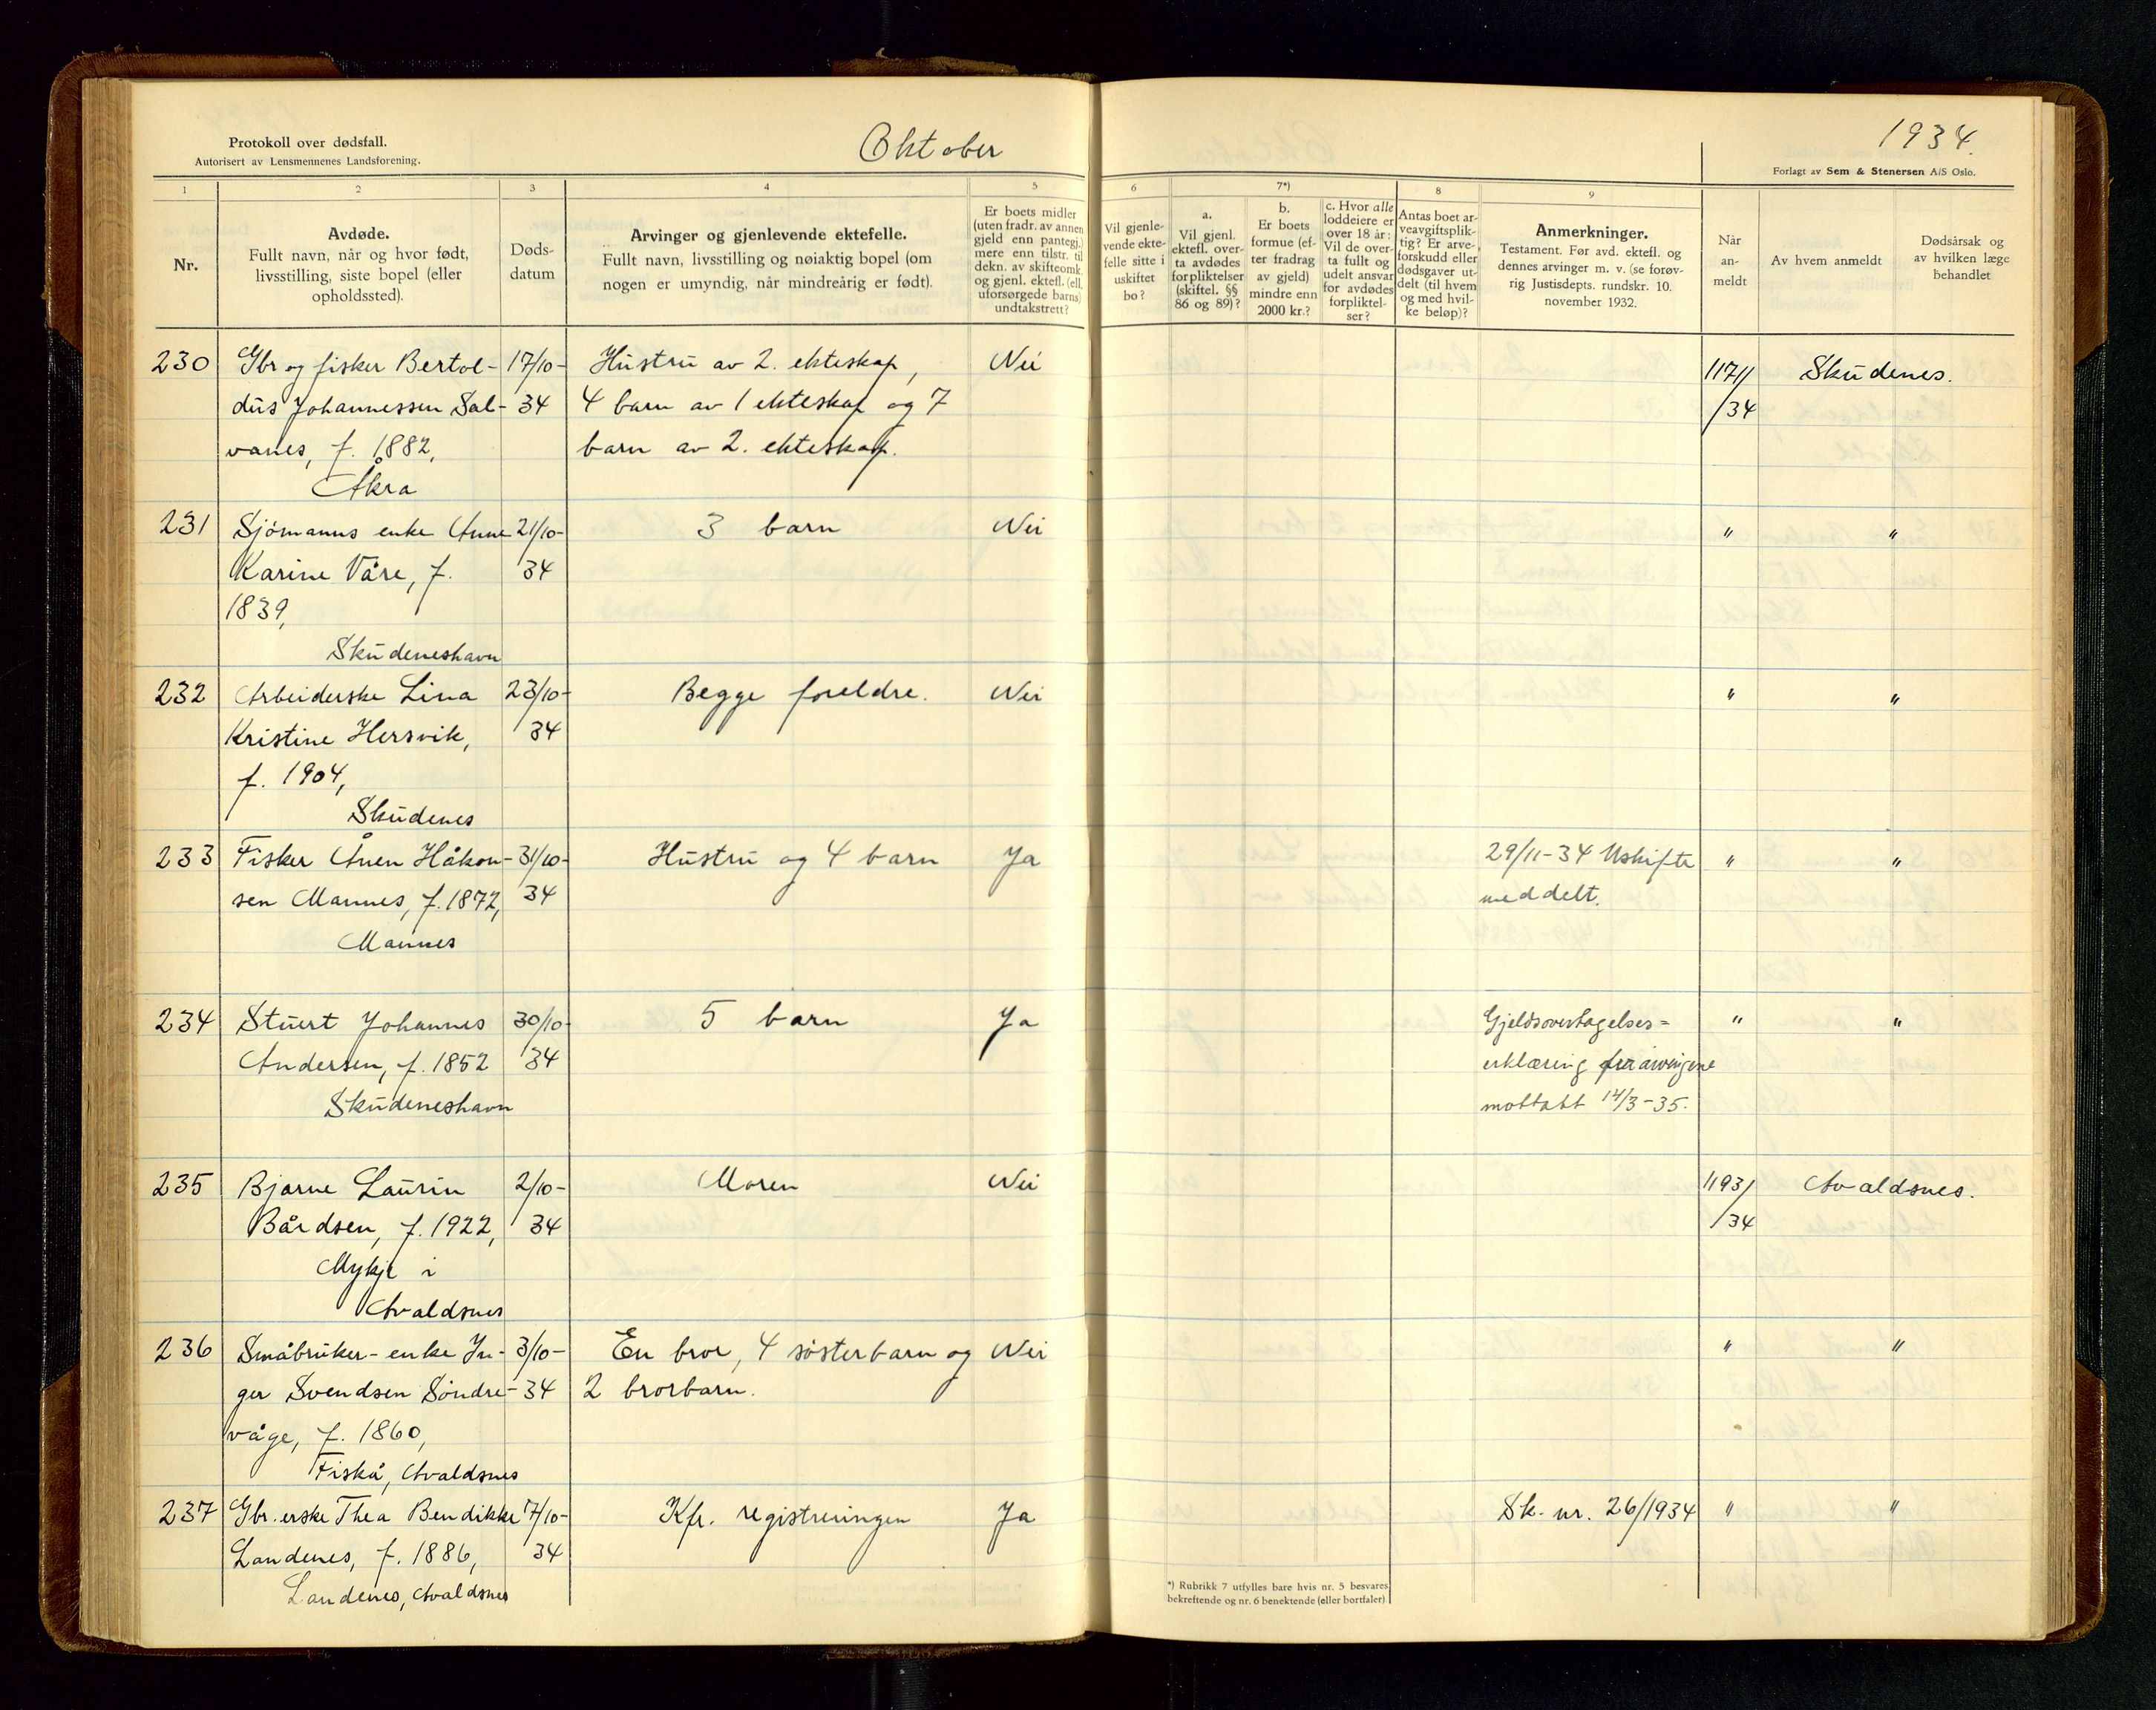 Protokoll over dødsfall.
Autorisert av Lensmennenes Landsforening.
Oktober
1934.
Forlagt av Sem & Stenersen A/S Oslo.
1 2 3 4 5 6 7*) 8 9
Nr.
Avdøde.
Fullt navn, når og hvor født,
livsstilling, siste bopel (eller
opholdssted).
Døds-
datum
Arvinger og gjenlevende ektefelle.
Fullt navn, livsstilling og nøiaktig bopel (om
nogen er umyndig, når mindreårig er født).
Er boets midler
(uten fradr. av annen
gjeld enn pantegj.)
mere enn tilstr. til
dekn. av skifteomk.
og gjenl. ektefl. (ell.
uforsørgede barns)
undtakstrett?
Vil gjenle-
vende ekte-
felle sitte i
uskiftet
bo?
a.
Vil gjenl.
ektefl. over-
ta avdødes
forpliktelser
(skiftel. §§
86 og 89)?
b.
Er boets
formue (ef-
ter fradrag
av gjeld)
mindre enn
2000 kr.?
c. Hvor alle
loddeiere er
over 18 år:
Vil de over-
ta fullt og
udelt ansvar
for avdødes
forpliktel-
ser?
Antas boet ar-
veavgiftsplik-
tig? Er arve-
forskudd eller
dødsgaver ut-
delt (til hvem
og med hvil-
ke beløp)?
Anmerkninger.
Testament. Før avd. ektefl. og
dennes arvinger m. v. (se forøv-
rig Justisdepts. rundskr. 10.
november 1932.
Når
an-
meldt
Av hvem anmeldt
Dødsårsak og
av hvilken læge
behandlet
230 Gbr og fisker Bertol- 17/10- Hustru av 2. ekteskap, Nei 1171/ Skudenes.
dus Johannessen Sal- 34 4 barn av 1 ekteskap og 7 /34
vanes, f. 1882, barn av 2. ekteskap.
Åkra
231 Sjømanns enke Anne 21/10- 3 barn Nei " "
Karine Våre, f. 34
1839,
Skudeneshavn
232 Arbeiderske Lina 23/10- Begge foreldre. Nei " "
Kristine Hersvik, 34
f. 1904,
Skudenes
233 Fisker Ånen Håkon- 31/10- Hustru og 4 barn Ja 29/11-34 Uskifte " "
sen Mannes, f. 1872, 34 meddelt.
Mannes
234 Stuert Johannes 30/10- 5 barn Ja Gjeldsovertagelses= " "
Andersen, f. 1852 34 erklæring fra arvingene
Skudeneshavn mottatt 14/3-35.
235 Bjarne Laurin 2/10- Moren Nei 1193/ Avaldsnes.
Bårdsen, f. 1922, 34 /34
Mykje i
Avaldsnes
236 Småbruker-enke In- 3/10- En bror, 4 søsterbarn og Nei " "
ger Svendsen Søndre- 34 2 brorbarn.
våge, f. 1860,
Fiskå, Avaldsnes
237 Gbr.erske Thea Bendikke 7/10- Kfr. registreringen Ja Sk. nr. 26/1934 " "
Landenes, f. 1886, 34
Landenes, Avaldsnes
*) Rubrikk 7 utfylles bare hvis nr. 5 besvares
bekreftende og nr. 6 benektende (eller bortfaler).